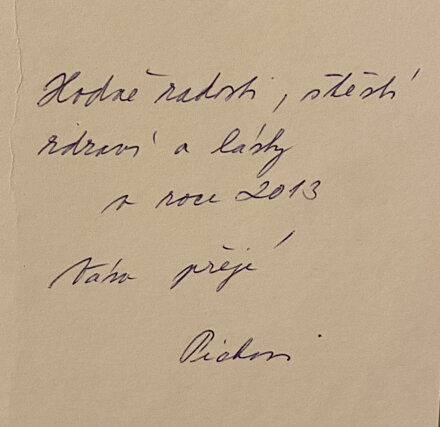 Hodně radosti, štěstí
zdraví a lásky
v roce 2013
přejí